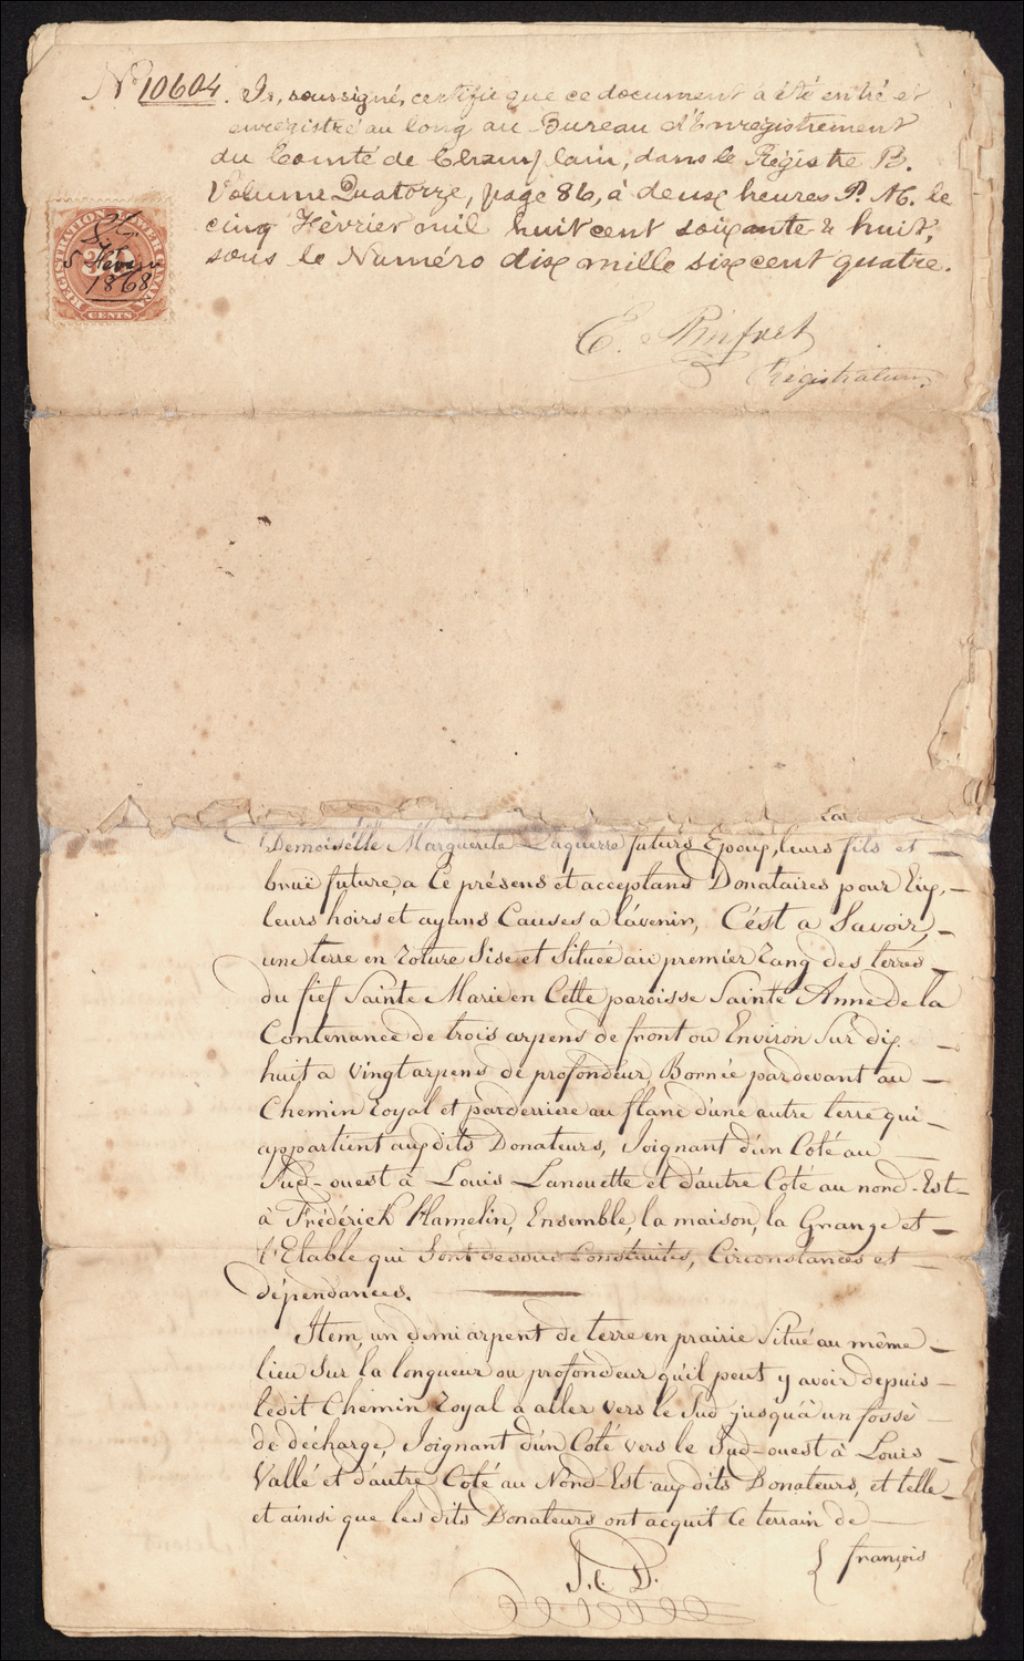 No 10604. Je, soussigné, certifie que ce document a été entré et
enregistré au long au Bureau d'Enregistrement
du Comté de Champlain, dans le Régistre B.
Volume Quatorze, page 86, à deux heures P. M. le
cinq Février mil huit cent soixante & huit,
sous le Numéro dix mille six cent quatre.
REGISTRATION LOWER CANADA
CENTS
5 Février
1868
E. Rinfret
Registrateur.
Demoiselle Marguerite Laquerre futurs Epoux, leurs fils et
bruë future, a Ce présens et acceptans Donataires pour Eux,
leurs hoirs et ayans Causes a l'avenir, C'ést a Savoir,
une terre en roture Sise et Située au premier rang des terres
du fief Sainte Marie en Cette paroisse Sainte Anne de la
Contenance de trois arpens de front ou Environ Sur dix
huit a vingt arpens de profondeur, Bornée pardevant au
Chemin royal et parderriere au flanc d'une autre terre qui
appartient aux dits Donateurs, Joignant d'un Coté au
Sud-ouest à Louis Lanouette et d'autre Coté au nord-Est
à Frédérick Hamelin, Ensemble, la maison, la Grange et
l'Etable qui Sont dessus Construites, Circonstances et
dépendances.
Item, un demi arpent de terre en prairie Situé au même
lieu Sur la longueur ou profondeur qu'il peut y avoir depuis
ledit Chemin royal a aller vers le Sud jusqu'à un fossé
de décharge, Joignant d'un Coté vers le Sud-ouest à Louis
Vallé et d'autre Coté au Nord-Est aux dits Donateurs, et telle
et ainsi que les dits Donateurs ont acquit le terrain de
françois
J. C. D.